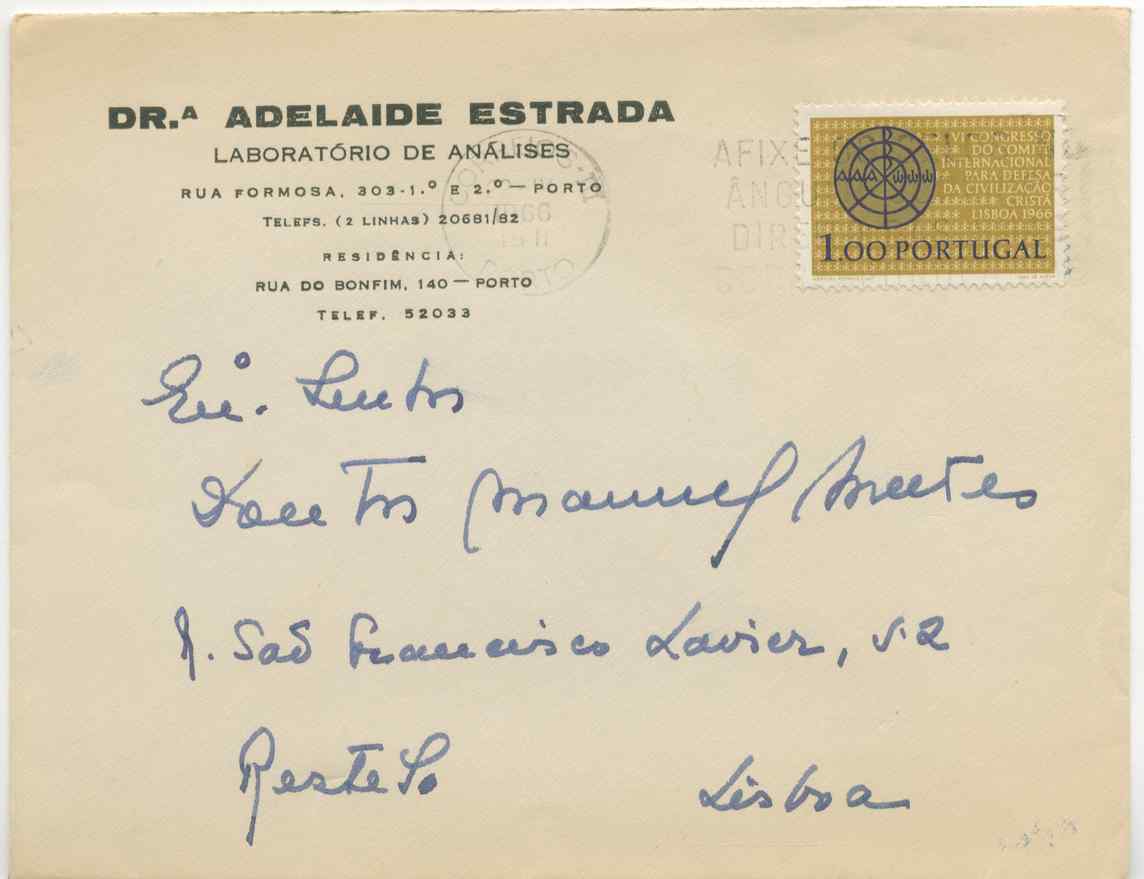 DR.ª ADELAIDE ESTRADA
LABORATÓRIO DE ANÁLISES
RUA FORMOSA, 303-1.º E 2.º — PORTO
TELEFS. (2 LINHAS) 20681/82
RESIDÊNCIA:
RUA DO BONFIM, 140 — PORTO
TELEF. 52033
1966
AFIXE
ÂNGU
DIR
VI CONGRESSO
DO COMITÉ
INTERNACIONAL
PARA DEFESA
DA CIVILIZAÇÃO
CRISTÃ
LISBOA 1966
1.00 PORTUGAL
Senhor
Doutor Manuel
R. São Francisco Xavier, 52
Restelo Lisboa